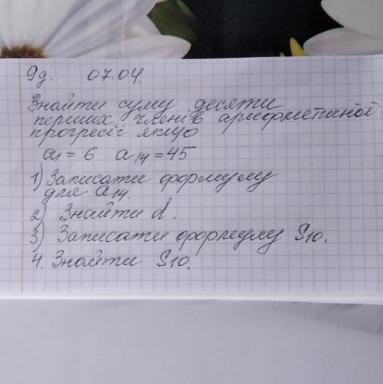 9д. 07.04.
Знайти суму десяти
перших членів арифметичної
прогресії якщо
a1 = 6 a14 = 45
1) Записати формулу
для a14.
2) Знайти d.
3) Записати формулу S10.
4. Знайти S10.